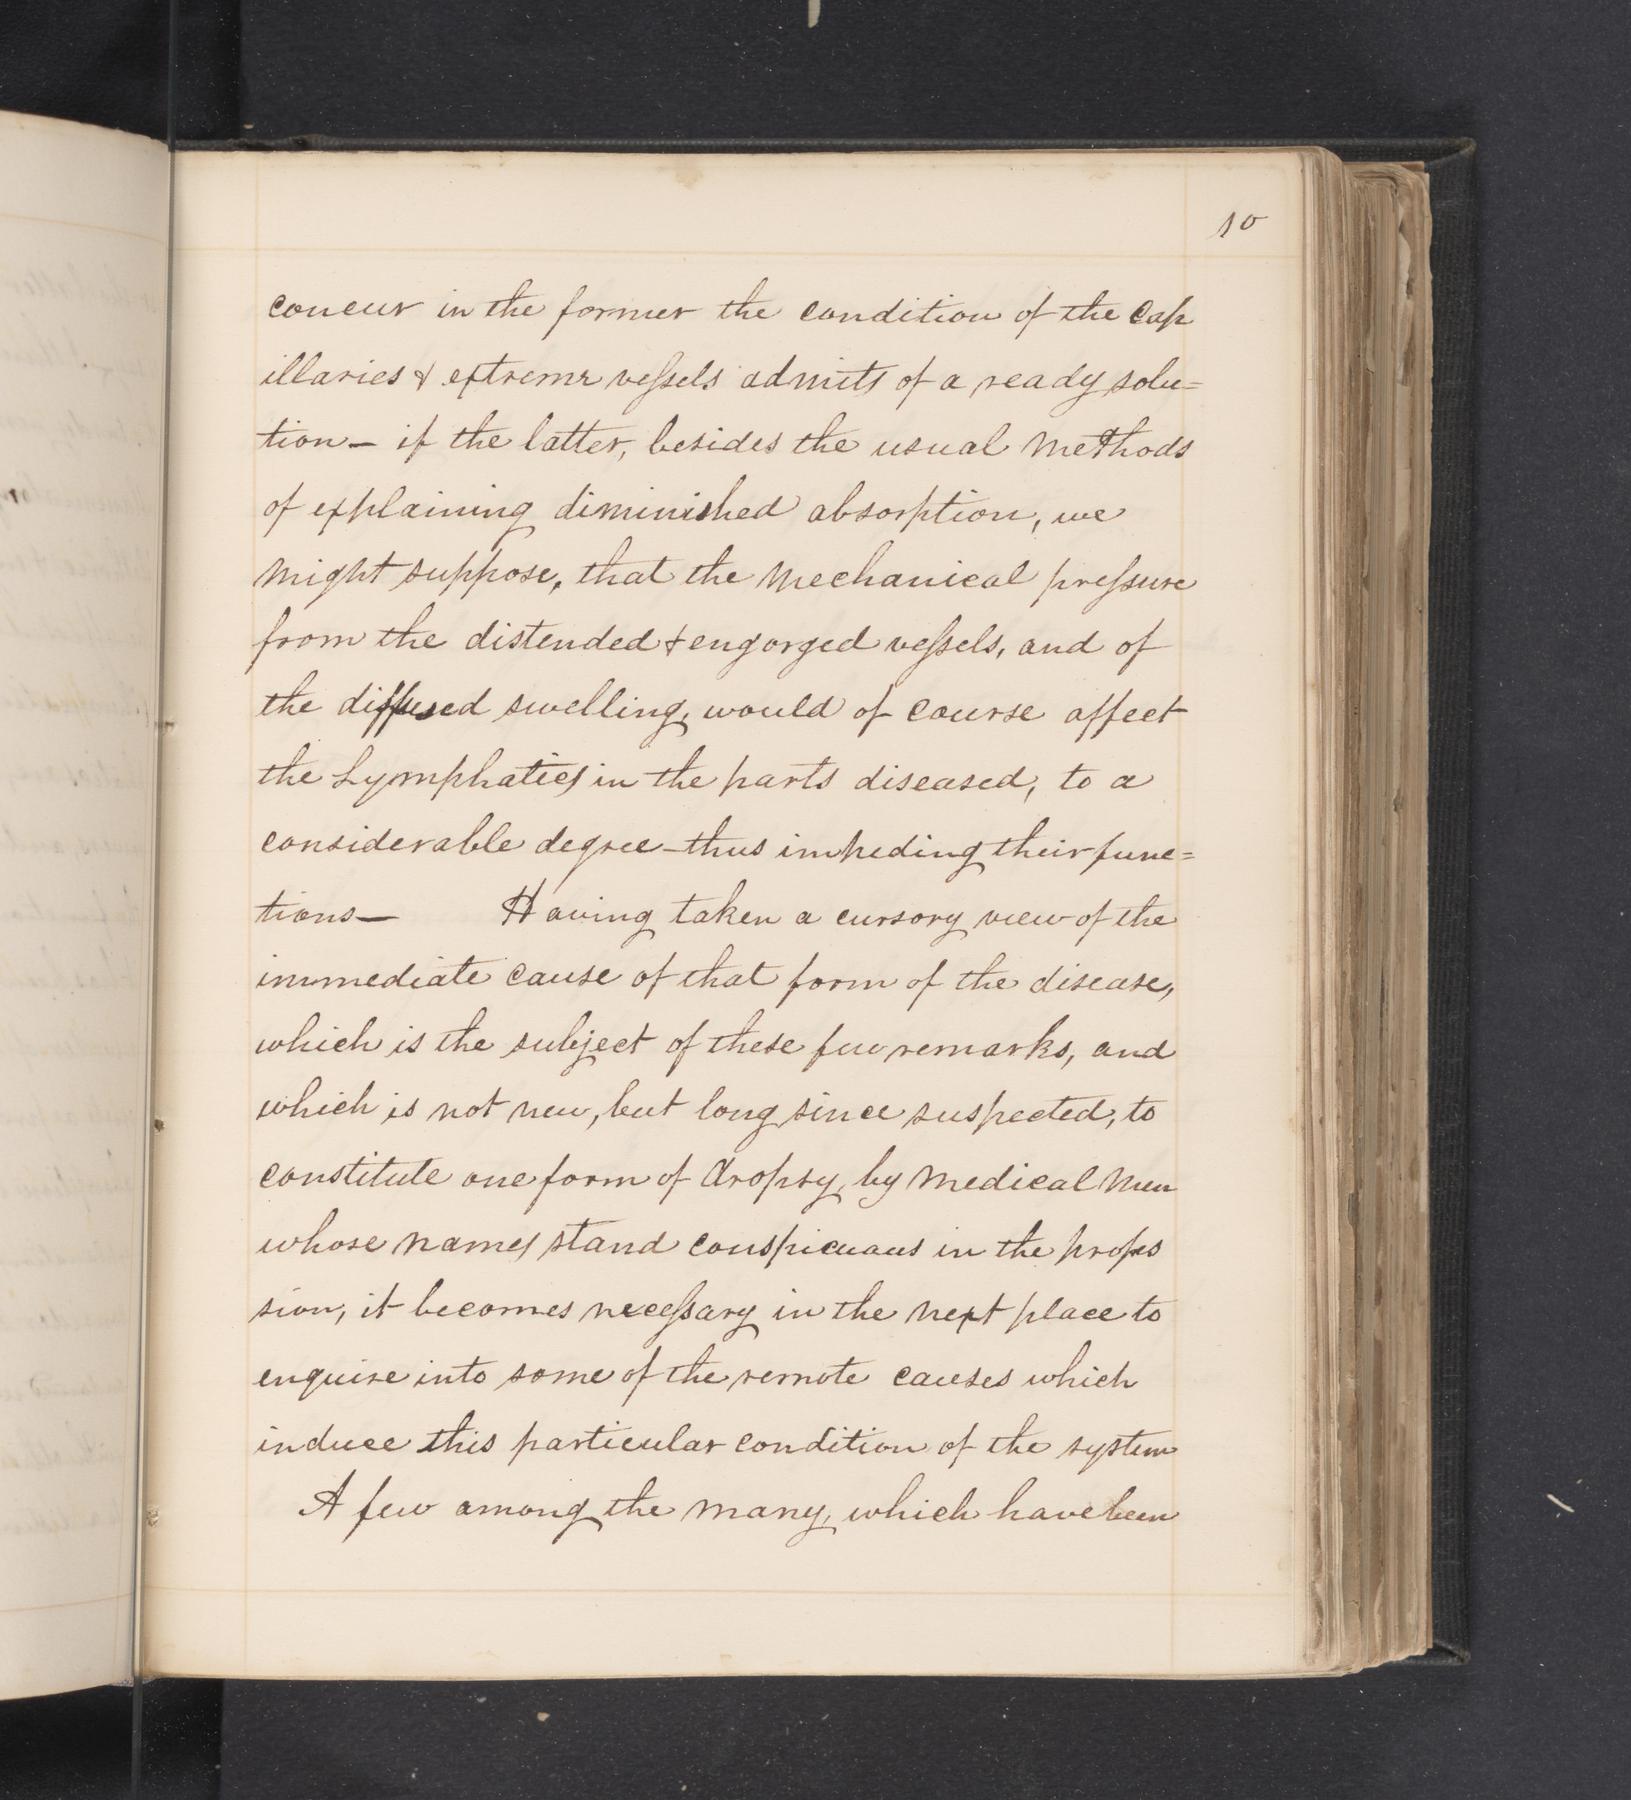 10
concur in the former the condition of the cap
illaries & extreme vessels admits of a ready solu=
tion— if the latter, besides the usual methods
of explaining diminished absorption, we
might suppose, that the mechanical pressure
from the distended & engorged vessels, and of
the diffused swelling, would of course affect
the Lymphatics in the parts diseased, to a
considerable degree—thus impeding their func=
tions— Having taken a cursory view of the
immediate cause of that form of the disease,
which is the subject of these few remarks, and
which is not new, but long since suspected, to
constitute one form of dropsy, by medical men
whose names stand conspicuous in the profes
sion, it becomes necessary in the next place to
enquire into some of the remote causes which
induce this particular condition of the system
A few among the many, which have been